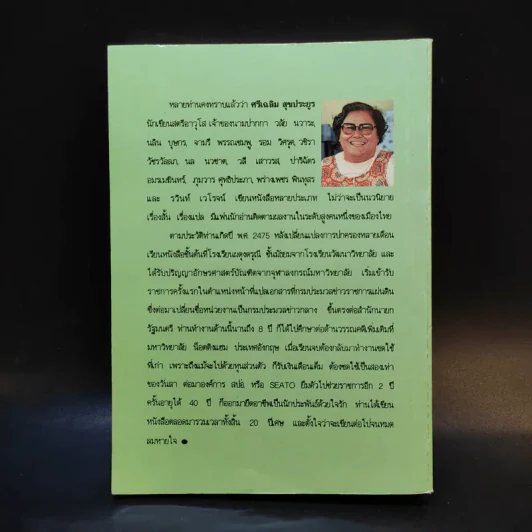 หลายท่านคงทราบแล้วว่า ศรีเฉลิม สุขประยูร
นักเขียนสตรีอาวุโส เจ้าของนามปากกา วลัย นวาระ,
นลิน บุษกร, จามรี พรรณชมพู, รอม วิศรุต, วชิรา
วัชรวัลลภ, นล นวชาต, วลี เสาวรส, ปาริฉัตร
อมรเมขินทร์, ภุมวาร ศุทธิประภา, พร่างเพชร พินทุสร
และ รวินท์ เวโรจน์ เขียนหนังสือหลายประเภท ไม่ว่าจะเป็นนวนิยาย
เรื่องสั้น เรื่องแปล มีแฟนนักอ่านติดตามผลงานในระดับสูงคนหนึ่งของเมืองไทย
ตามประวัติท่านเกิดปี พ.ศ. 2475 หลังเปลี่ยนแปลงการปกครองหลายเดือน
เรียนหนังสือชั้นต้นที่โรงเรียนผดุงดรุณี ชั้นมัธยมจากโรงเรียนวัฒนาวิทยาลัย และ
ได้รับปริญญาอักษรศาสตร์บัณฑิตจากจุฬาลงกรณ์มหาวิทยาลัย เริ่มเข้ารับ
ราชการครั้งแรกในตำแหน่งหน้าที่แปลเอกสารที่กรมประมวลข่าวราชการแผ่นดิน
ซึ่งต่อมาเปลี่ยนชื่อหน่วยงานเป็นกรมประมวลข่าวกลาง ขึ้นตรงต่อสำนักนายก
รัฐมนตรี ท่านทำงานด้านนี้นานถึง 8 ปี ก็ได้ไปศึกษาต่อด้านวรรณคดีเพิ่มเติมที่
มหาวิทยาลัย น็อตติงแฮม ประเทศอังกฤษ เมื่อเรียนจบต้องกลับมาทำงานชดใช้
ที่เก่า เพราะถึงแม้จะไปด้วยทุนส่วนตัว ก็รับเงินเดือนเต็ม ต้องชดใช้เป็นสองเท่า
ของวันลา ต่อมาองค์การ สปอ. หรือ SEATO ยืมตัวไปช่วยราชการอีก 2 ปี
ครั้นอายุได้ 40 ปี ก็ออกมายึดอาชีพเป็นนักประพันธ์ด้วยใจรัก ท่านได้เขียน
หนังสือตลอดมารวมเวลาทั้งสิ้น 20 ปีเศษ และตั้งใจว่าจะเขียนต่อไปจนหมด
ลมหายใจ ●